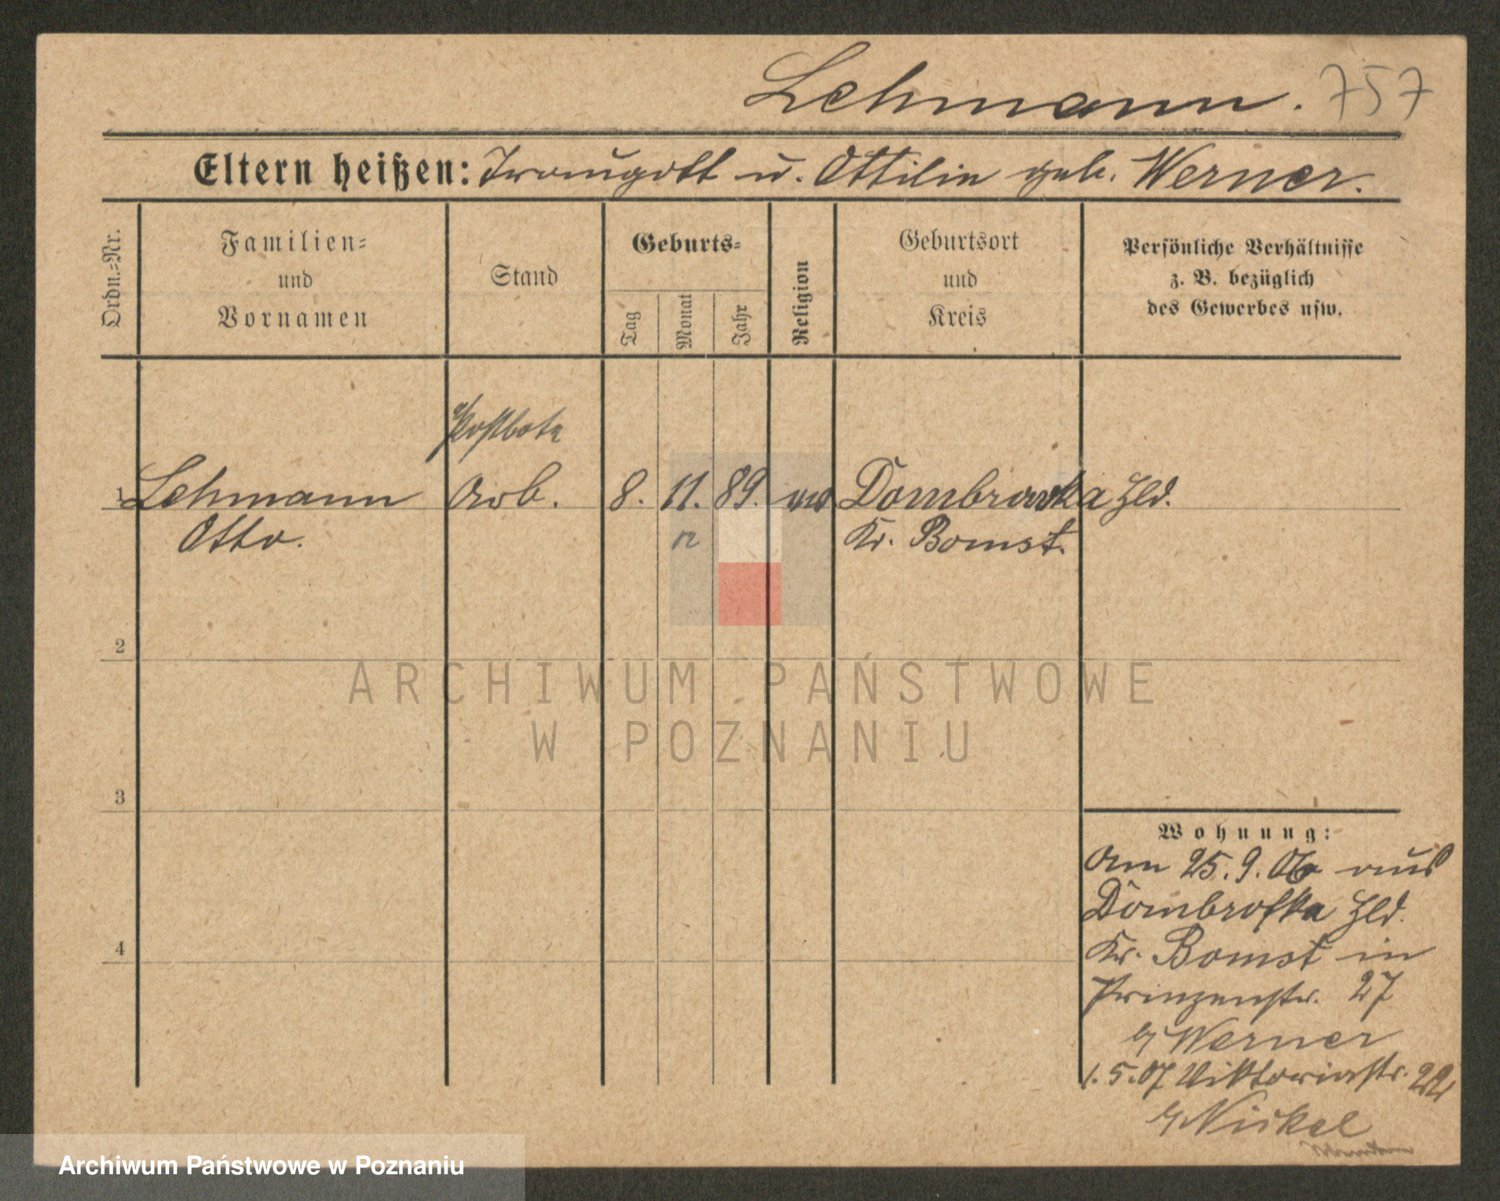 Lehmann. 757
Eltern heißen: Traugott u. Ottilie geb. Werner.
Ordn.=Nr.
Familien=
und
Vornamen
Stand
Geburts=
Tag
Monat
Jahr
Religion
Geburtsort
und
Kreis
Persönliche Verhältnisse
z. B. bezüglich
des Gewerbes usw.
Postbote
1 Lehmann Arb. 8. 11. 89. Dombrowka Hld.
Otto. Kr. Bomst.
2
3
4
Wohnung:
Am 25.9.06 aus
Dombrofka Hld.
Kr. Bomst in
Prinzenstr. 27
b/ Werner
1.5.07 Viktoriastr. 22
b/ Nickel
ARCHIWUM PAŃSTWOWE
W POZNANIU
Archiwum Państwowe w Poznaniu